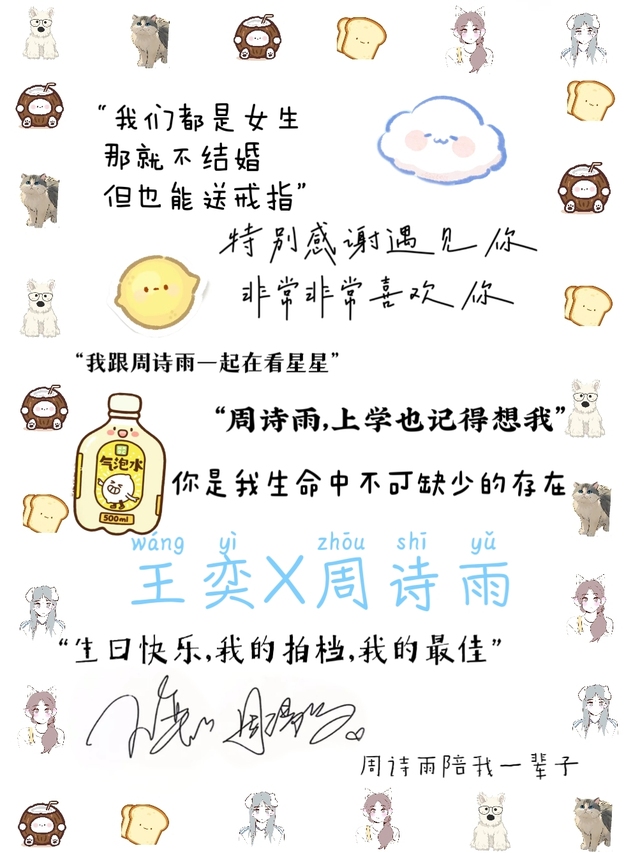 “我们都是女生
那就不结婚
但也能送戒指”
特别感谢遇见你
非常非常喜欢你
“我跟周诗雨一起在看星星”
“周诗雨,上学也记得想我”
气泡水
500ml
你是我生命中不可缺少的存在
wáng yì zhōu shī yǔ
王奕X周诗雨
“生日快乐,我的拍档,我的最佳”
周诗雨陪我一辈子